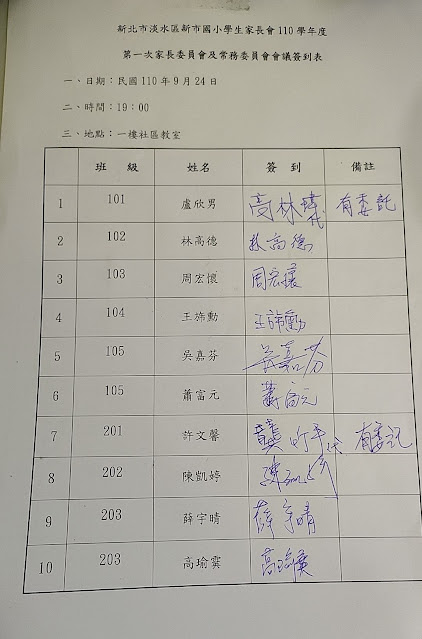 新北市淡水區新市國小學生家長會110學年度
第一次家長委員會及常務委員會會議簽到表
一、日期：民國110年9月24日
二、時間：19：00
三、地點：一樓社區教室
班 級 姓名 簽 到 備註
1 101 盧欣男 高林瑋代 有委託
2 102 林高德 林高德
3 103 周宏懷 周宏懷
4 104 王旆勳 王旆勳
5 105 吳嘉芬 吳嘉芬
6 105 蕭富元 蕭富元
7 201 許文馨 龔昀平代 有委託
8 202 陳凱婷 陳凱婷
9 203 薛宇晴 薛宇晴
10 203 高瑜霙